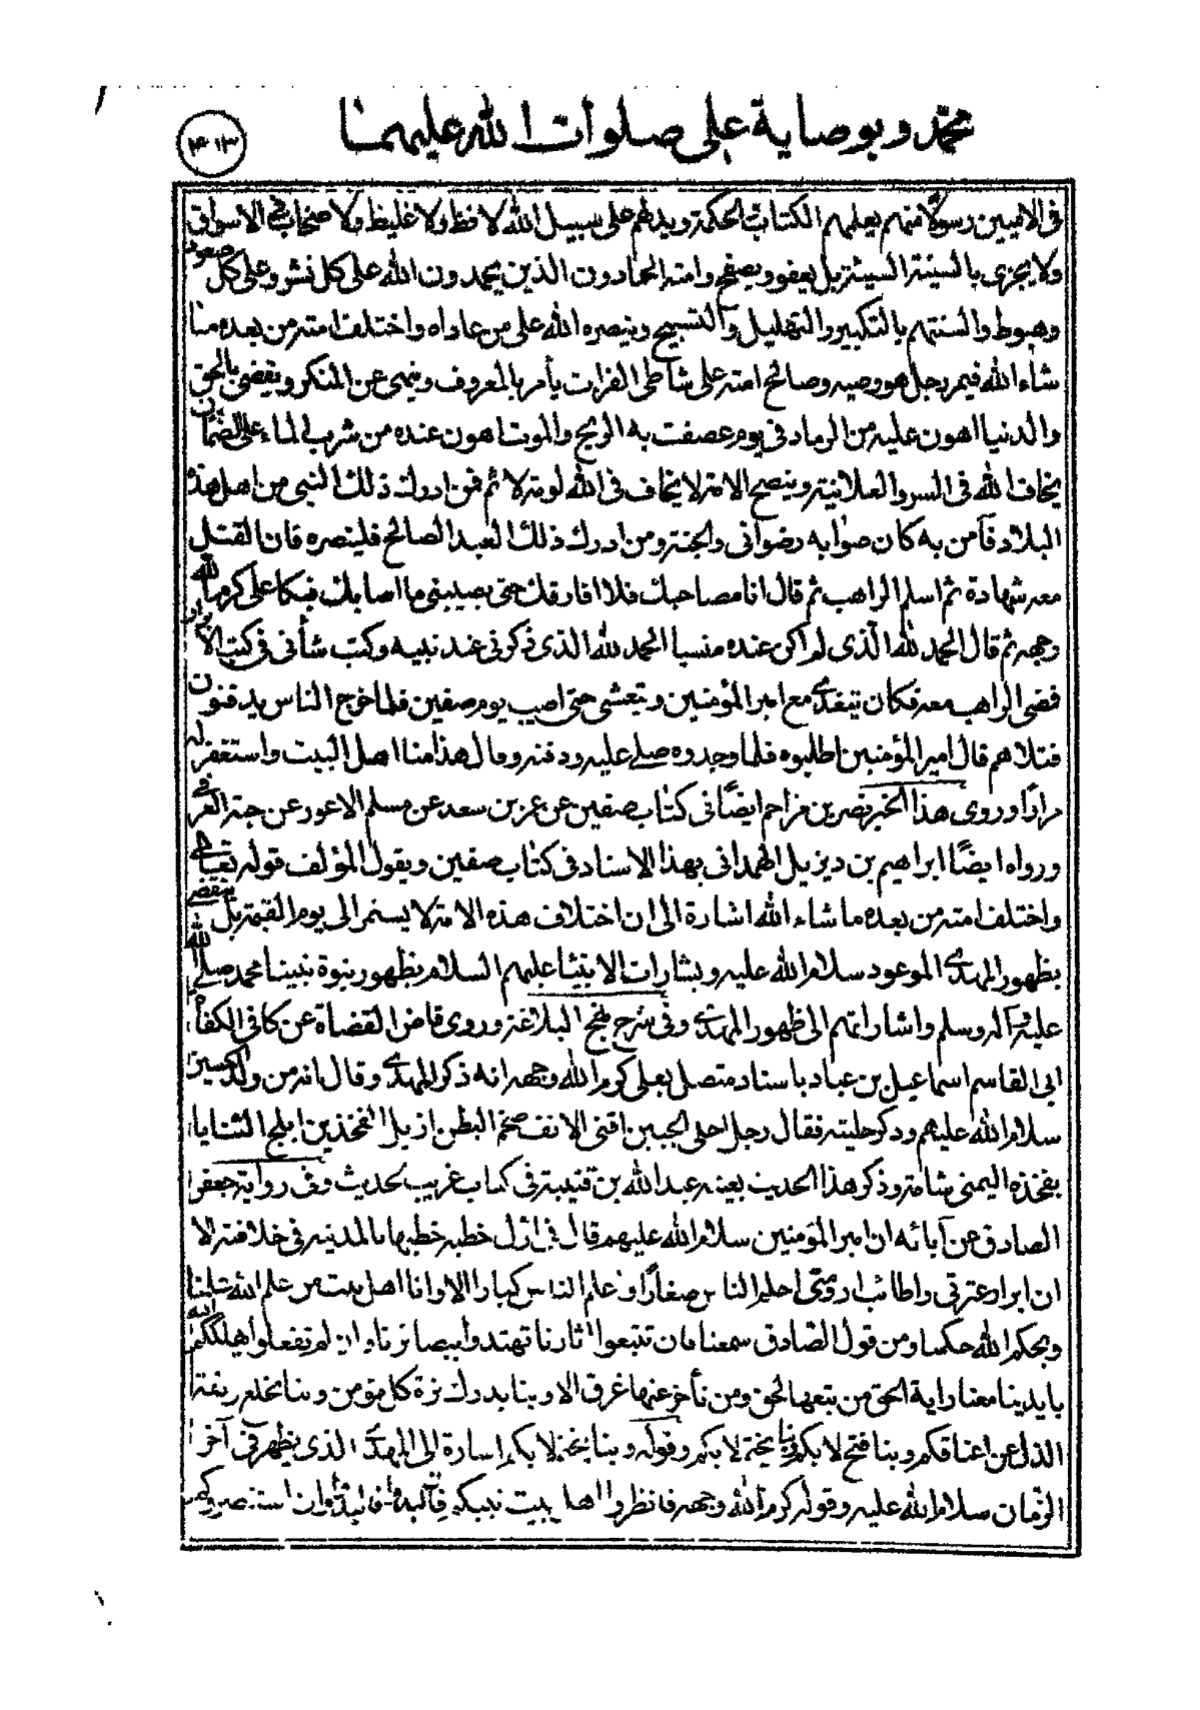 محمّد و بوصایة علی صلوات الله علیهما
۴۱۳
فی الامیین رسولًا منهم یعلمهم الکتاب والحکمة ویدلهم علی سبیل الله لا فظ ولا غلیظ ولا صخاب فی الاسواق
ولا یجزی بالسیئة السیئة بل یعفو ویصفح وامته الحمادون الذین یحمدون الله علی کل نشو وعلی کل صعود
وهبوط والسنتهم بالتکبیر والتهلیل والتسبیح وینصره الله علی من عاداه واختلف امته من بعده ما
شاء الله فیمر رجل هو وصیه وصالح امته علی شاطی الفرات یأمر بالمعروف وینهی عن المنکر ویقضی بالحق
والدنیا اهون علیه من الرماد فی یوم عصفت به الریح والموت اهون عنده من شرب الماء علی الظمآن
یخاف الله فی السر والعلانیة وینصح الامة لا یخاف فی الله لومة لائم فمن ادرک ذلک النبی من اهل هذه
البلاد فآمن به کان ثوابه رضوانی والجنة ومن ادرک ذلک العبد الصالح فلینصره فان القتل
معه شهادة ثم اسلم الراهب ثم قال انا مصاحبک فلا افارقک حتی یصیبنی ما اصابک فبکا علی کرم الله
وجهه ثم قال الحمد لله الّذی لم اکن عنده منسیا الحمد لله الذی ذکرنی عند نبیه وکتب شأنی فی کتب الابرار
فمضی الراهب معه فکان یتغدی مع امیر المؤمنین ویتعشی حتی اصیب یوم صفین فلما خرج الناس یدفنون
قتلاهم قال امیر المؤمنین اطلبوه فلما وجدوه صلی علیه ودفنه وقال هذا منا اهل البیت واستغفر له
مرارًا وروی هذا الخبر نصر بن مزاحم ایضًا فی کتاب صفین عن عمر بن سعد عن مسلم الاعور عن حبة العرفی
ورواه ایضًا ابراهیم بن دیزیل الهمدانی بهذا الاسناد فی کتاب صفین ویقول المؤلف قوله تعالی
واختلف امته من بعده ما شاء الله اشارة الی ان اختلاف هذه الامة لا یستمر الی یوم القیمة بل ینقضی
بظهور المهدی الموعود سلام الله علیه وبشارات الانبیاء علیهم السلام بظهور نبوة نبینا محمد صلی الله
علیه وآله وسلم واشاراتهم الی ظهور المهدی وفی شرح نهج البلاغة وروی قاضی القضاة عن کافی الکفاة
ابی القاسم اسماعیل بن عباد باسناد متصل بعلی کرم الله وجهه انه ذکر المهدی وقال انه من ولد الحسین
سلام الله علیهم وذکر حلیته فقال رجل اجلی الجبین اقنی الانف ضخم البطن ازیل الفخذین ابلج الثنایا
بفخذه الیمنی شامة وذکر هذا الحدیث بعینه عبدالله بن قتیبة فی کتاب غریب الحدیث وفی روایة جعفر
الصادق عن آبائه ان امیر المؤمنین سلام الله علیهم قال فی اول خطبة خطبها بالمدینة فی خلافته الا
ان ابرار عترتی واطائب ارومتی احلم الناس صغارًا واعلم الناس کبارا الا وانا اهل بیت من علم الله علمنا
وبحکم الله حکمنا ومن قول الصادق سمعنا فان تتبعوا آثارنا تهتدوا ببصائرنا وان لم تفعلوا یهلککم الله
بایدینا معنا رایة الحق من تبعها لحق ومن تأخر عنها غرق الا وبنا یدرک ترة کل مؤمن وبنا یخلع ربقة
الذل عن اعناقکم وبنا فتح لا بکم وبنا یختم لا بکم وقوله وبنا یختم لا بکم اشارة الی المهدی الذی یظهر فی آخر
الزمان سلام الله علیه وقوله کرم الله وجهه فانظروا اهل بیت نبیکم وان استنصروکم